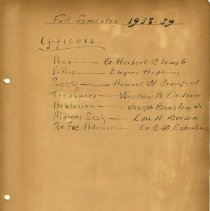 Fall Semester 1938-39
Officers
Pres - G Herbert Clough
V-Pres - Eugene Hopkins
Secty - Howard W. Crawford
Treasurer - B
Historian - Joseph Beasley, Jr
Alumni Secty - Em. A. Brown
Sr Fac Adviser - Dr. C. M.